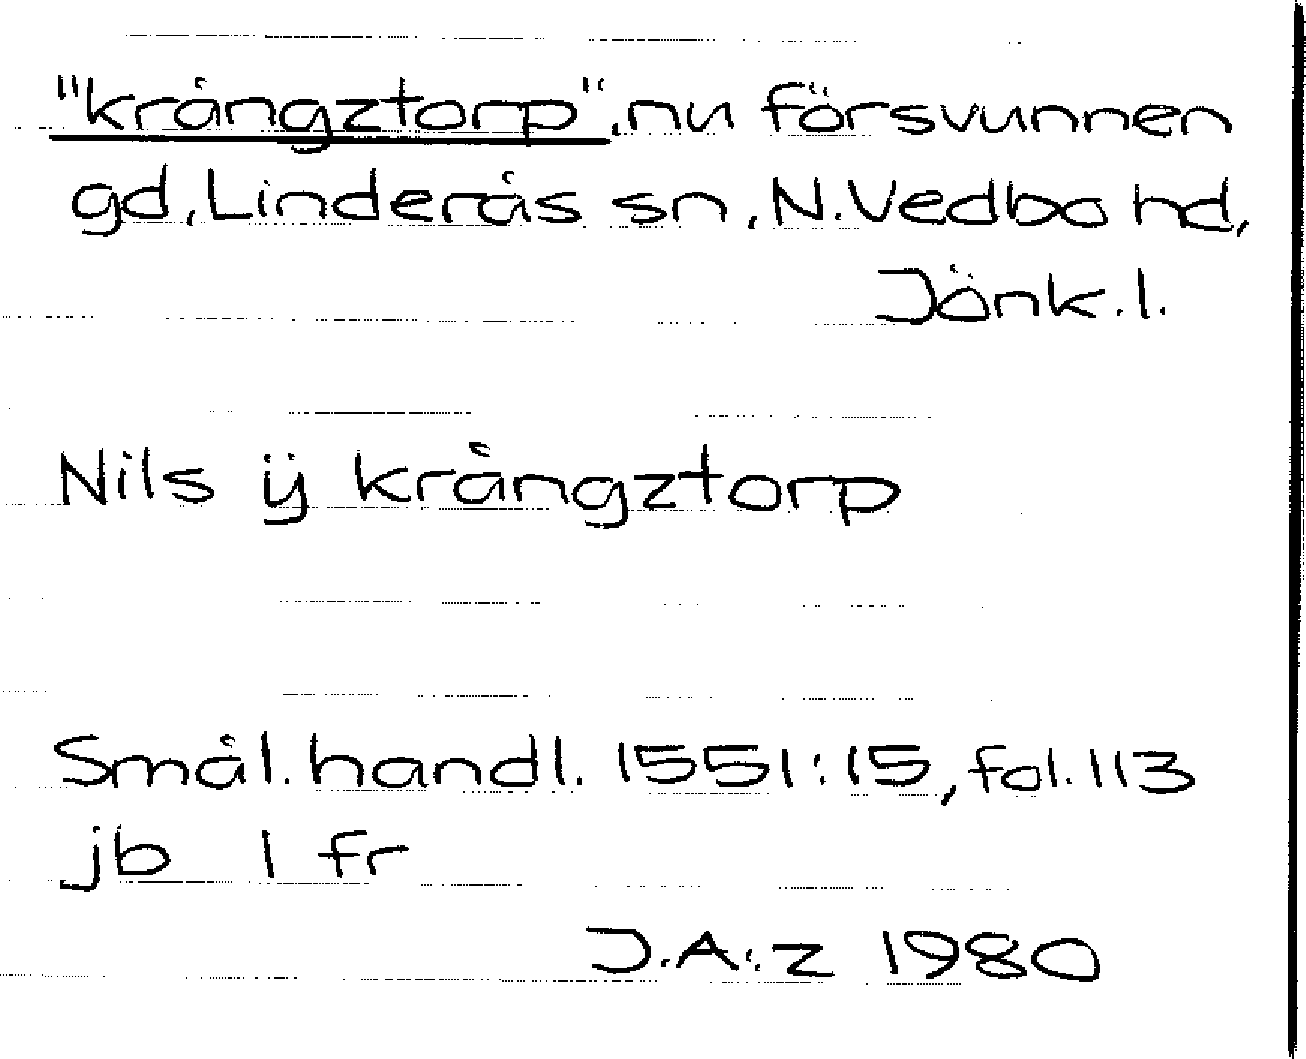 "krångztorp", nu försvunnen
gd, Linderås sn, N. Vedbo hd,
Jönk. l.
Nils ÿ krångztorp
Smål. handl. 1551:15, fol. 113
jb 1 fr
J.A:z 1980